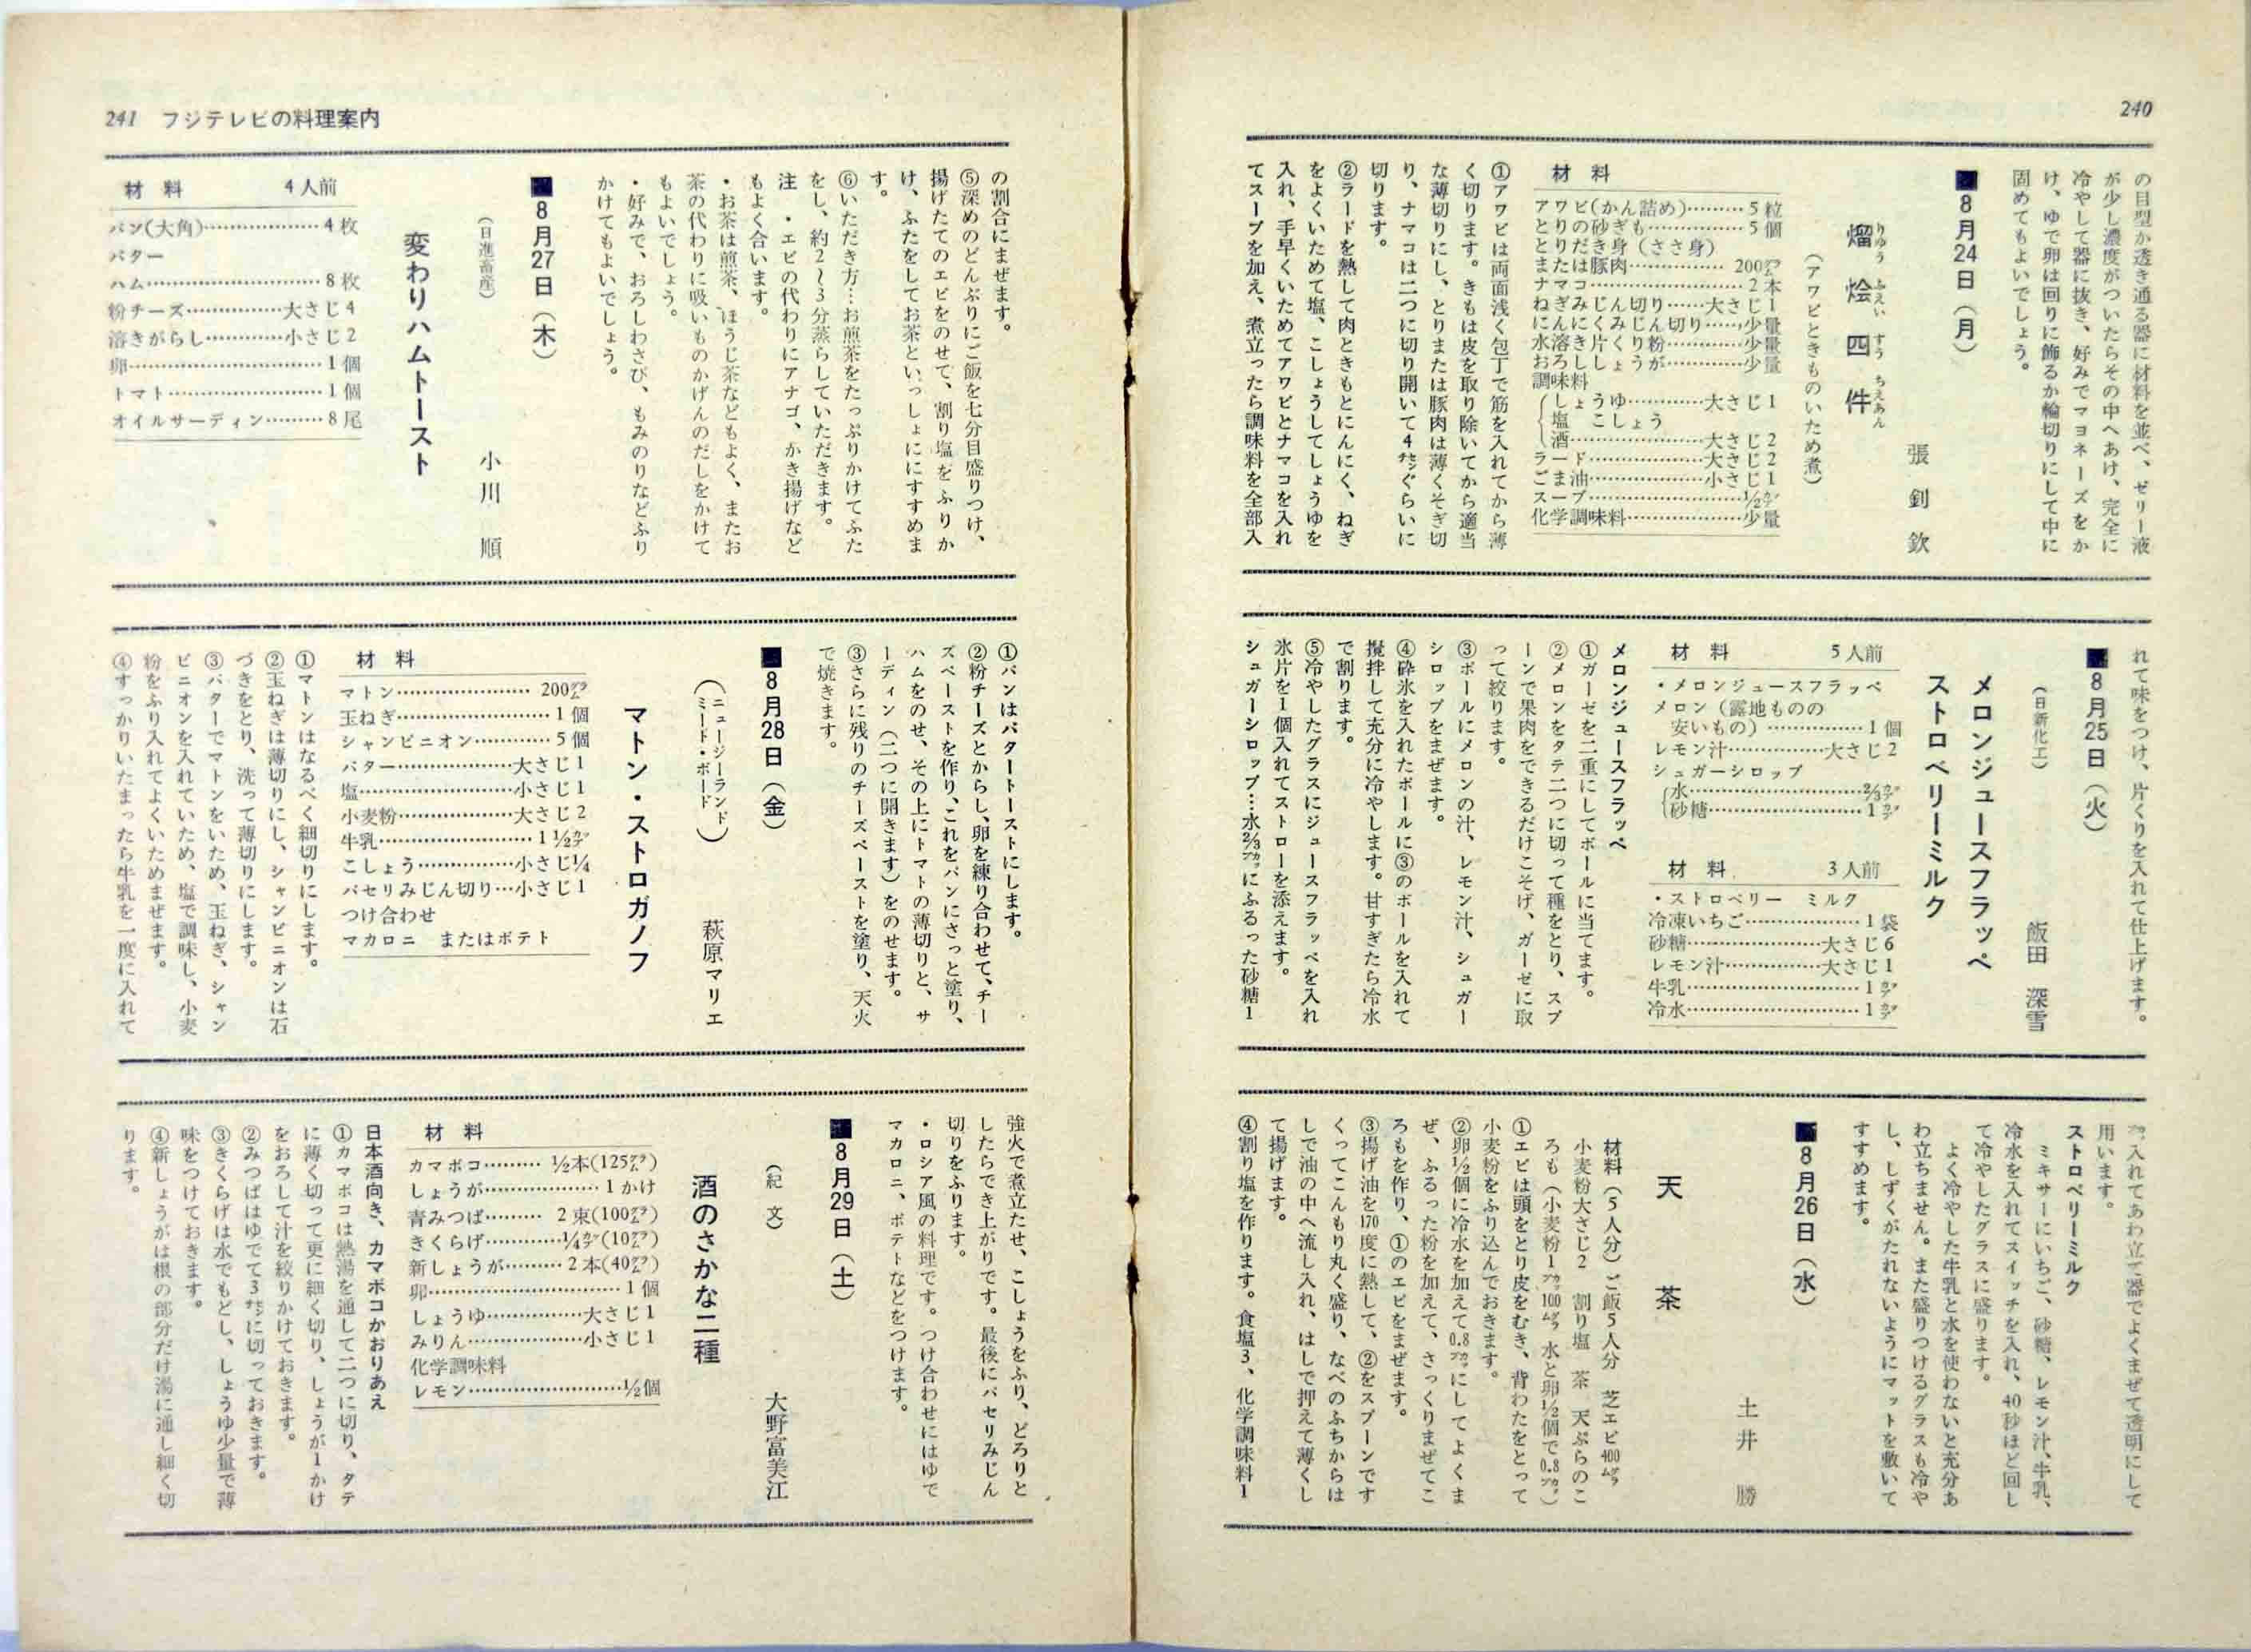 240
の目型か透き通る器に材料を並べ、ゼリー液
が少し濃度がついたらその中へあけ、完全に
冷やして器に抜き、好みでマヨネーズをか
け、ゆで卵は回りに飾るか輪切りにして中に
固めてもよいでしょう。
■8月24日(月)
張 釗 欽
熘烩四件
りゅう ふえい すう ちえあん
(アワビときものいため煮)
材料
アワビ(かん詰め)………5粒
とりの砂ぎも……………5個
とりだき身(ささ身)
または豚肉……………200㌘
ナマコ……………………2本
ねぎみじん切り……大さじ1
にんにくみじん切り……少量
水溶き片くり粉…………少量
おろししょうが…………少量
調味料
しょうゆ…………大さじ1
塩 こしょう
酒…………………大さじ2
ラード………………大さじ2
ごま油………………小さじ1
スープ……………………½㌍
化学調味料………………少量
①アワビは両面浅く包丁で筋を入れてから薄
く切ります。きもは皮を取り除いてから適当
な薄切りにし、とりまたは豚肉は薄くそぎ切
り、ナマコは二つに切り開いて4㌢ぐらいに
切ります。
②ラードを熱して肉ときもとにんにく、ねぎ
をよくいためて塩、こしょうしてしょうゆを
入れ、手早くいためてアワビとナマコを入れ
てスープを加え、煮立ったら調味料を全部入
れて味をつけ、片くりを入れて仕上げます。
■8月25日(火)
(日新化工)
飯田 深雪
メロンジュースフラッペ
ストロベリーミルク
材料 5人前
・メロンジュースフラッペ
メロン(露地ものの
安いもの)……………1個
レモン汁……………大さじ2
シュガーシロップ
水……………………⅔カップ
砂糖……………………1カップ
材料 3人前
・ストロベリー ミルク
冷凍いちご………………1袋
砂糖…………………大さじ6
レモン汁……………大さじ1
牛乳………………………1カップ
冷水………………………1カップ
メロンジュースフラッペ
①ガーゼを二重にしてボールに当てます。
②メロンをタテ二つに切って種をとり、スプ
ーンで果肉をできるだけこそげ、ガーゼに取
って絞ります。
③ボールにメロンの汁、レモン汁、シュガー
シロップをまぜます。
④砕氷を入れたボールに③のボールを入れて
攪拌して充分に冷やします。甘すぎたら冷水
で割ります。
⑤冷やしたグラスにジュースフラッペを入れ
氷片を1個入れてストローを添えます。
シュガーシロップ…水⅔カップにふるった砂糖1
カップ入れてあわ立て器でよくまぜて透明にして
用います。
ストロベリーミルク
ミキサーにいちご、砂糖、レモン汁、牛乳、
冷水を入れてスイッチを入れ、40秒ほど回し
て冷やしたグラスに盛ります。
よく冷やした牛乳と水を使わないと充分あ
わ立ちません。また盛りつけるグラスも冷や
し、しずくがたれないようにマットを敷いて
すすめます。
■8月26日(水)
土井 勝
天茶
材料(5人分)ご飯5人分 芝エビ400㌘
小麦粉大さじ2 割り塩 茶 天ぷらのこ
ろも(小麦粉1カップ100㌘ 水と卵½個で0.8カップ)
①エビは頭をとり皮をむき、背わたをとって
小麦粉をふり込んでおきます。
②卵½個に冷水を加えて0.8カップにしてよくま
ぜ、ふるった粉を加えて、さっくりまぜてこ
ろもを作り、①のエビをまぜます。
③揚げ油を170度に熱して、②をスプーンです
くってこんもり丸く盛り、なべのふちからは
しで油の中へ流し入れ、はしで押えて薄くし
て揚げます。
④割り塩を作ります。食塩3、化学調味料1
241 フジテレビの料理案内
の割合にまぜます。
⑤深めのどんぶりにご飯を七分目盛りつけ、
揚げたてのエビをのせて、割り塩をふりか
け、ふたをしてお茶といっしょににすすめま
す。
⑥いただき方…お煎茶をたっぷりかけてふた
をし、約2～3分蒸らしていただきます。
注 ・エビの代わりにアナゴ、かき揚げなど
もよく合います。
・お茶は煎茶、ほうじ茶などもよく、またお
茶の代わりに吸いものかげんのだしをかけて
もよいでしょう。
・好みで、おろしわさび、もみのりなどふり
かけてもよいでしょう。
■8月27日(木)
(日進畜産)
小川 順
変わりハムトースト
材料 4人前
パン(大角)………………4枚
バター
ハム………………………8枚
粉チーズ……………大さじ4
溶きがらし…………小さじ2
卵…………………………1個
トマト……………………1個
オイルサーディン………8尾
①パンはバタートーストにします。
②粉チーズとからし、卵を練り合わせて、チー
ズペーストを作り、これをパンにさっと塗り、
ハムをのせ、その上にトマトの薄切りと、サ
ーディン(二つに開きます)をのせます。
③さらに残りのチーズペーストを塗り、天火
で焼きます。
■8月28日(金)
(ニュージーランド
ミート・ボード)
萩原マリエ
マトン・ストロガノフ
材料
マトン…………………200㌘
玉ねぎ……………………1個
シャンピニオン…………5個
バター………………大さじ1
塩……………………小さじ1
小麦粉………………大さじ2
牛乳……………………1½カップ
こしょう……………小さじ¼
パセリみじん切り…小さじ1
つけ合わせ
マカロニ またはポテト
①マトンはなるべく細切りにします。
②玉ねぎは薄切りにし、シャンピニオンは石
づきをとり、洗って薄切りにします。
③バターでマトンをいため、玉ねぎ、シャン
ピニオンを入れていため、塩で調味し、小麦
粉をふり入れてよくいためまぜます。
④すっかりいたまったら牛乳を一度に入れて
強火で煮立たせ、こしょうをふり、どろりと
したらでき上がりです。最後にパセリみじん
切りをふります。
・ロシア風の料理です。つけ合わせにはゆで
マカロニ、ポテトなどをつけます。
■8月29日(土)
(紀文)
大野富美江
酒のさかな二種
材料
カマボコ………½本(125㌘)
しょうが………………1かけ
青みつば………2束(100㌘)
きくらげ…………¼カップ(10㌘)
新しょうが………2本(40㌘)
卵…………………………1個
しょうゆ……………大さじ1
みりん………………小さじ1
化学調味料
レモン……………………½個
日本酒向き、カマボコかおりあえ
①カマボコは熱湯を通して二つに切り、タテ
に薄く切って更に細く切り、しょうが1かけ
をおろして汁を絞りかけておきます。
②みつばはゆでて3㌢に切っておきます。
③きくらげは水でもどし、しょうゆ少量で薄
味をつけておきます。
④新しょうがは根の部分だけ湯に通し細く切
ります。